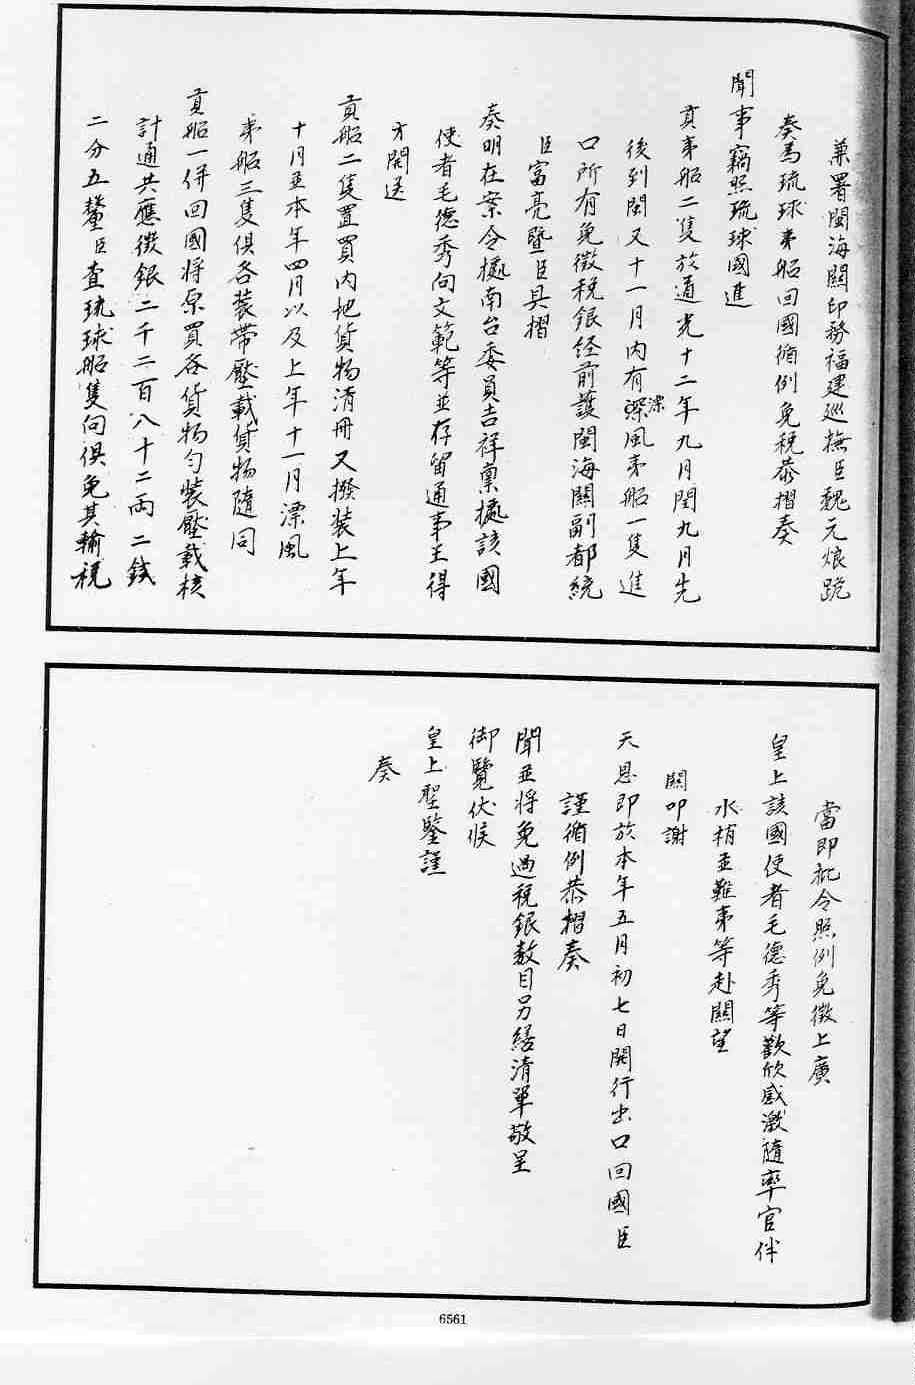 兼署閩海關印務福建巡撫臣魏元烺跪
奏為琉球夷船回國循例免稅恭摺奏
聞事竊照琉球國進
貢夷船二隻於道光十二年九月閏九月先
後到閩又十一月內有漂風夷船一隻進
口所有免徵稅銀經前護閩海關副都統
臣富亮暨臣具摺
奏明在案今據南台委員吉祥稟據該國
使者毛德秀向文範等並存留通事王得
才開送
貢船二隻置買內地貨物清冊又撥裝上年
十月並本年四月以及上年十一月漂風
夷船三隻俱各裝帶壓載貨物隨同
貢船一併回國將原買各貨物勻裝壓載核
計通共應徵銀二千二百八十二兩二錢
二分五釐臣查琉球船隻向俱免其輸稅
當即批令照例免徵上廣
皇上該國使者毛德秀等歡欣感激隨率官伴
水梢並難夷等赴關望
闕叩謝
天恩即於本年五月初七日開行出口回國臣
謹循例恭摺奏
聞並將免過稅銀數目另繕清單敬呈
御覽伏候
皇上聖鑒謹
奏
6561